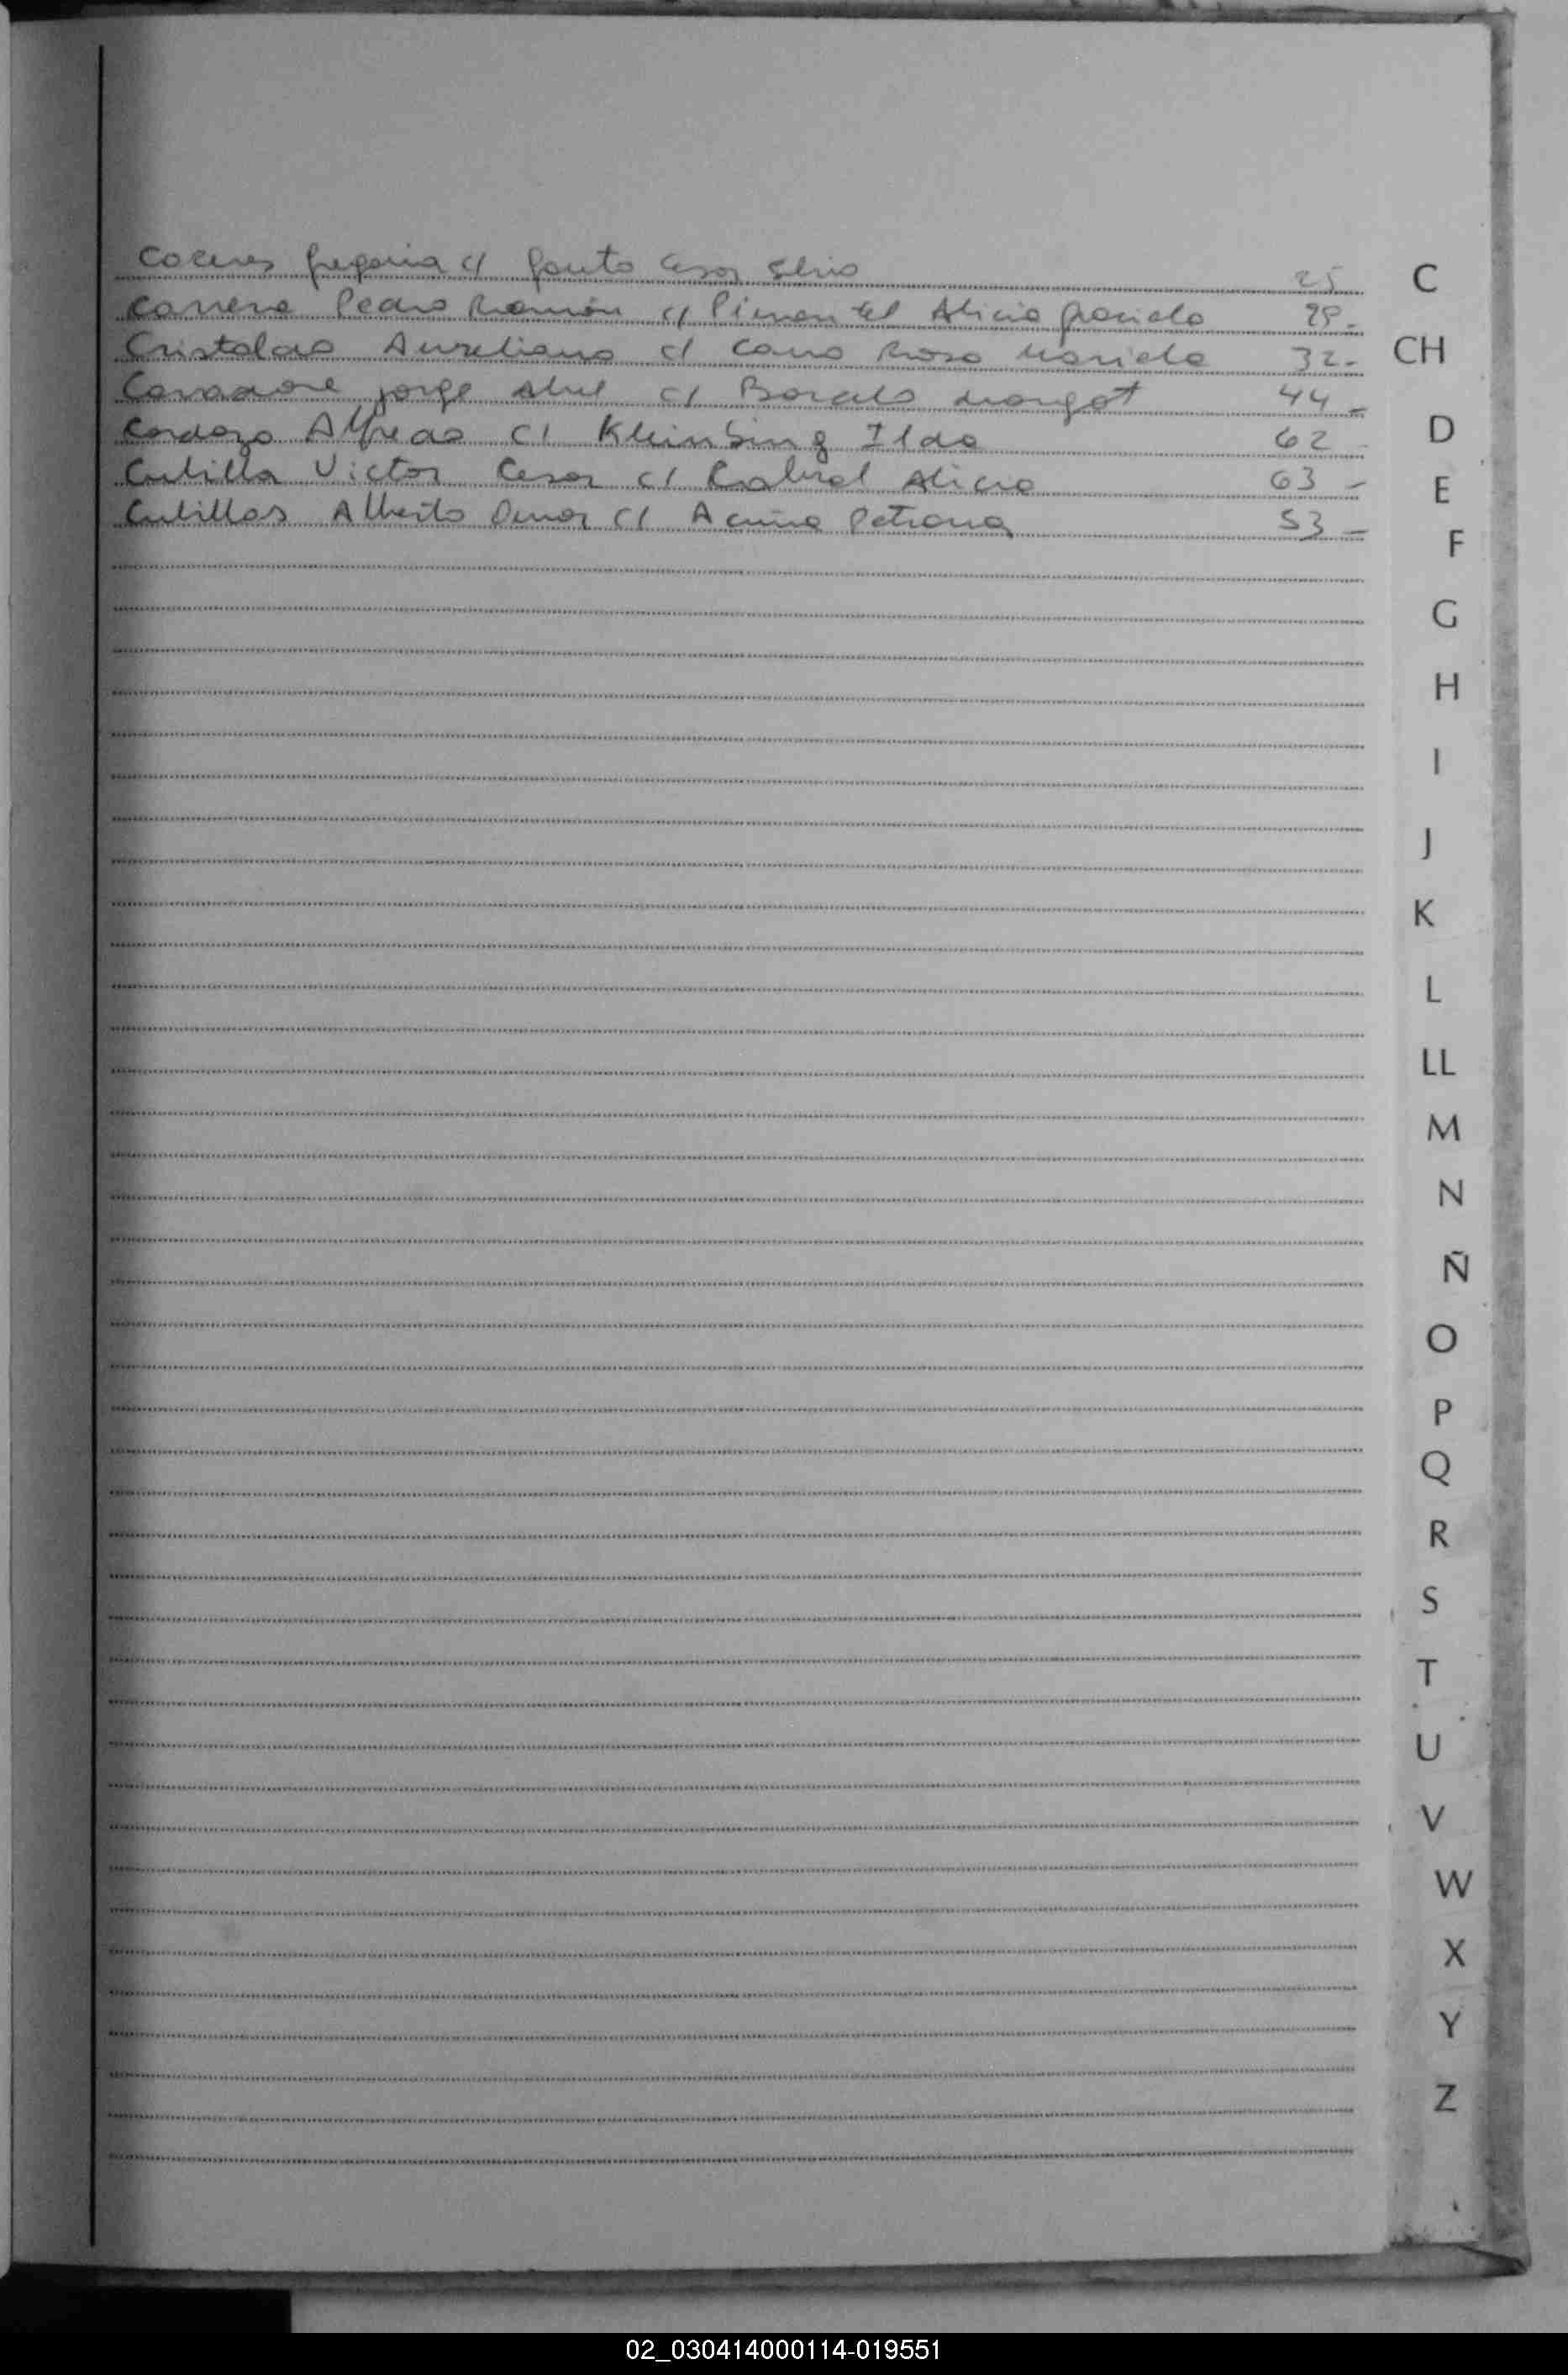 Caceres Gregoria c/ Gauto Cesar Silvio 25
Carrera Pedro Ramón c/ Pimentel Alicia Graciela 29-
Cristaldo Aureliano c/ Cano Rosa Mariela 32-
Jorge Abel c/ Margot 44-
Cardozo Alfredo c/ Kleinbing Ilda 62
Cubilla Victor Cesar c/ Cabral Alicia 63-
Cubillas Alberto c/ Acuña Petrona 53-
C
CH
D
E
F
G
H
I
J
K
L
LL
M
N
Ñ
O
P
Q
R
S
T
U
V
W
X
Y
Z
02_030414000114-019551